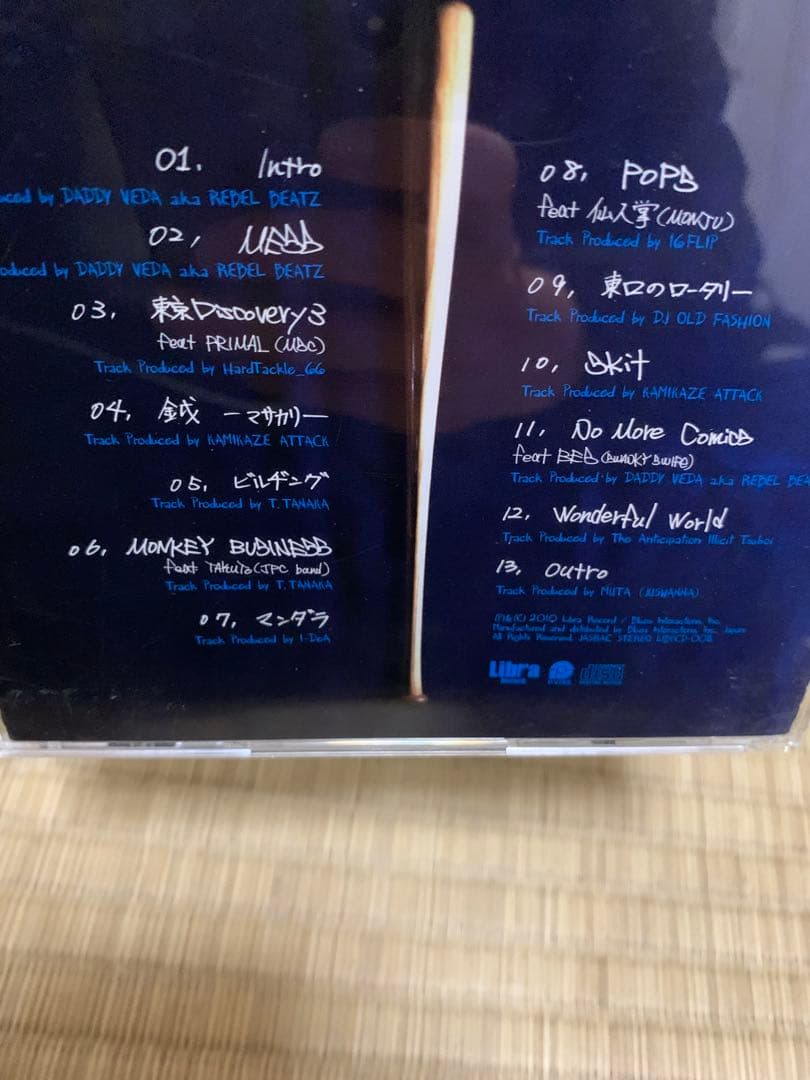 01. Intro
uced by DADDY VEDA aka REBEL BEATZ
02, MESS
oduced by DADDY VEDA aka REBEL BEATZ
03. 東京Discovery3
feat PRIMAL (MSC)
Track Produced by HardTackle_66
04. 鉞 ーマサカリー
Track Produced by KAMIKAZE ATTACK
05. ビルヂング
Track Produced by T.TANAKA
06. MONKEY BUSINESS
feat TAKUTO(JPC band)
Track Produced by T.TANAKA
07. マンダラ
Track Produced by I-DeA
08. POPS
feat 仙人掌(MONJU)
Track Produced by 16FLIP
09, 東口のロータリー
Track Produced by DJ OLD FASHION
10. Skit
Track Produced by KAMIKAZE ATTACK
11. No More Comics
feat BES(SWANKY SWIPE)
Track Produced by DADDY VEDA aka REBEL BEA
12. Wonderful World
Track Produced by The Anticipation Illicit Tsuboi
13. Outro
Track Produced by MUTA (JUSWANNA)
℗&© 2010 Libra Record / Blues Interactions, Inc.
Manufactured and distributed by Blues Interactions, Inc., Japan
All Rights Reserved. JASRAC STEREO LIBCD-008
Libra
disc